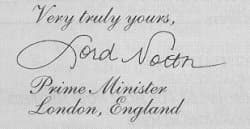 Very truly yours,
Lord North
Prime Minister
London, England